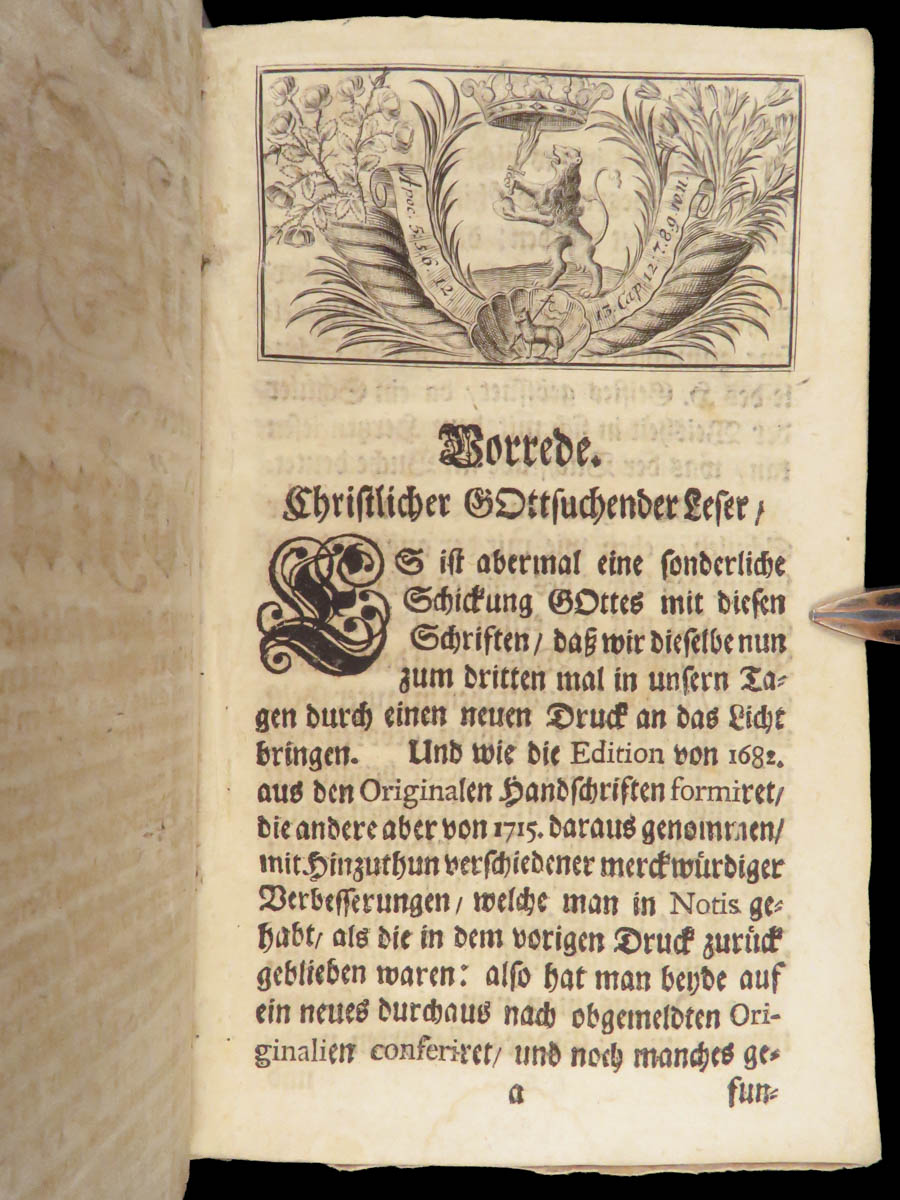 Apoc. 5 ℣ 5. 6. 12
13. Cap. 12. 7. 8. 9. 10. 11
Vorrede.
Christlicher GOttsuchender Leser /
ES ist abermal eine sonderliche
Schickung GOttes mit diesen
Schriften / daß wir dieselbe nun
zum dritten mal in unsern Ta-
gen durch einen neuen Druck an das Licht
bringen. Und wie die Edition von 1682.
aus den Originalen Handschriften formiret /
die andere aber von 1715. daraus genommen /
mit Hinzuthun verschiedener merckwürdiger
Verbesserungen / welche man in Notis ge-
habt / als die in dem vorigen Druck zurück
geblieben waren: also hat man beyde auf
ein neues durchaus nach obgemeldten Ori-
ginalien conferiret / und noch manches ge-
a
fun-